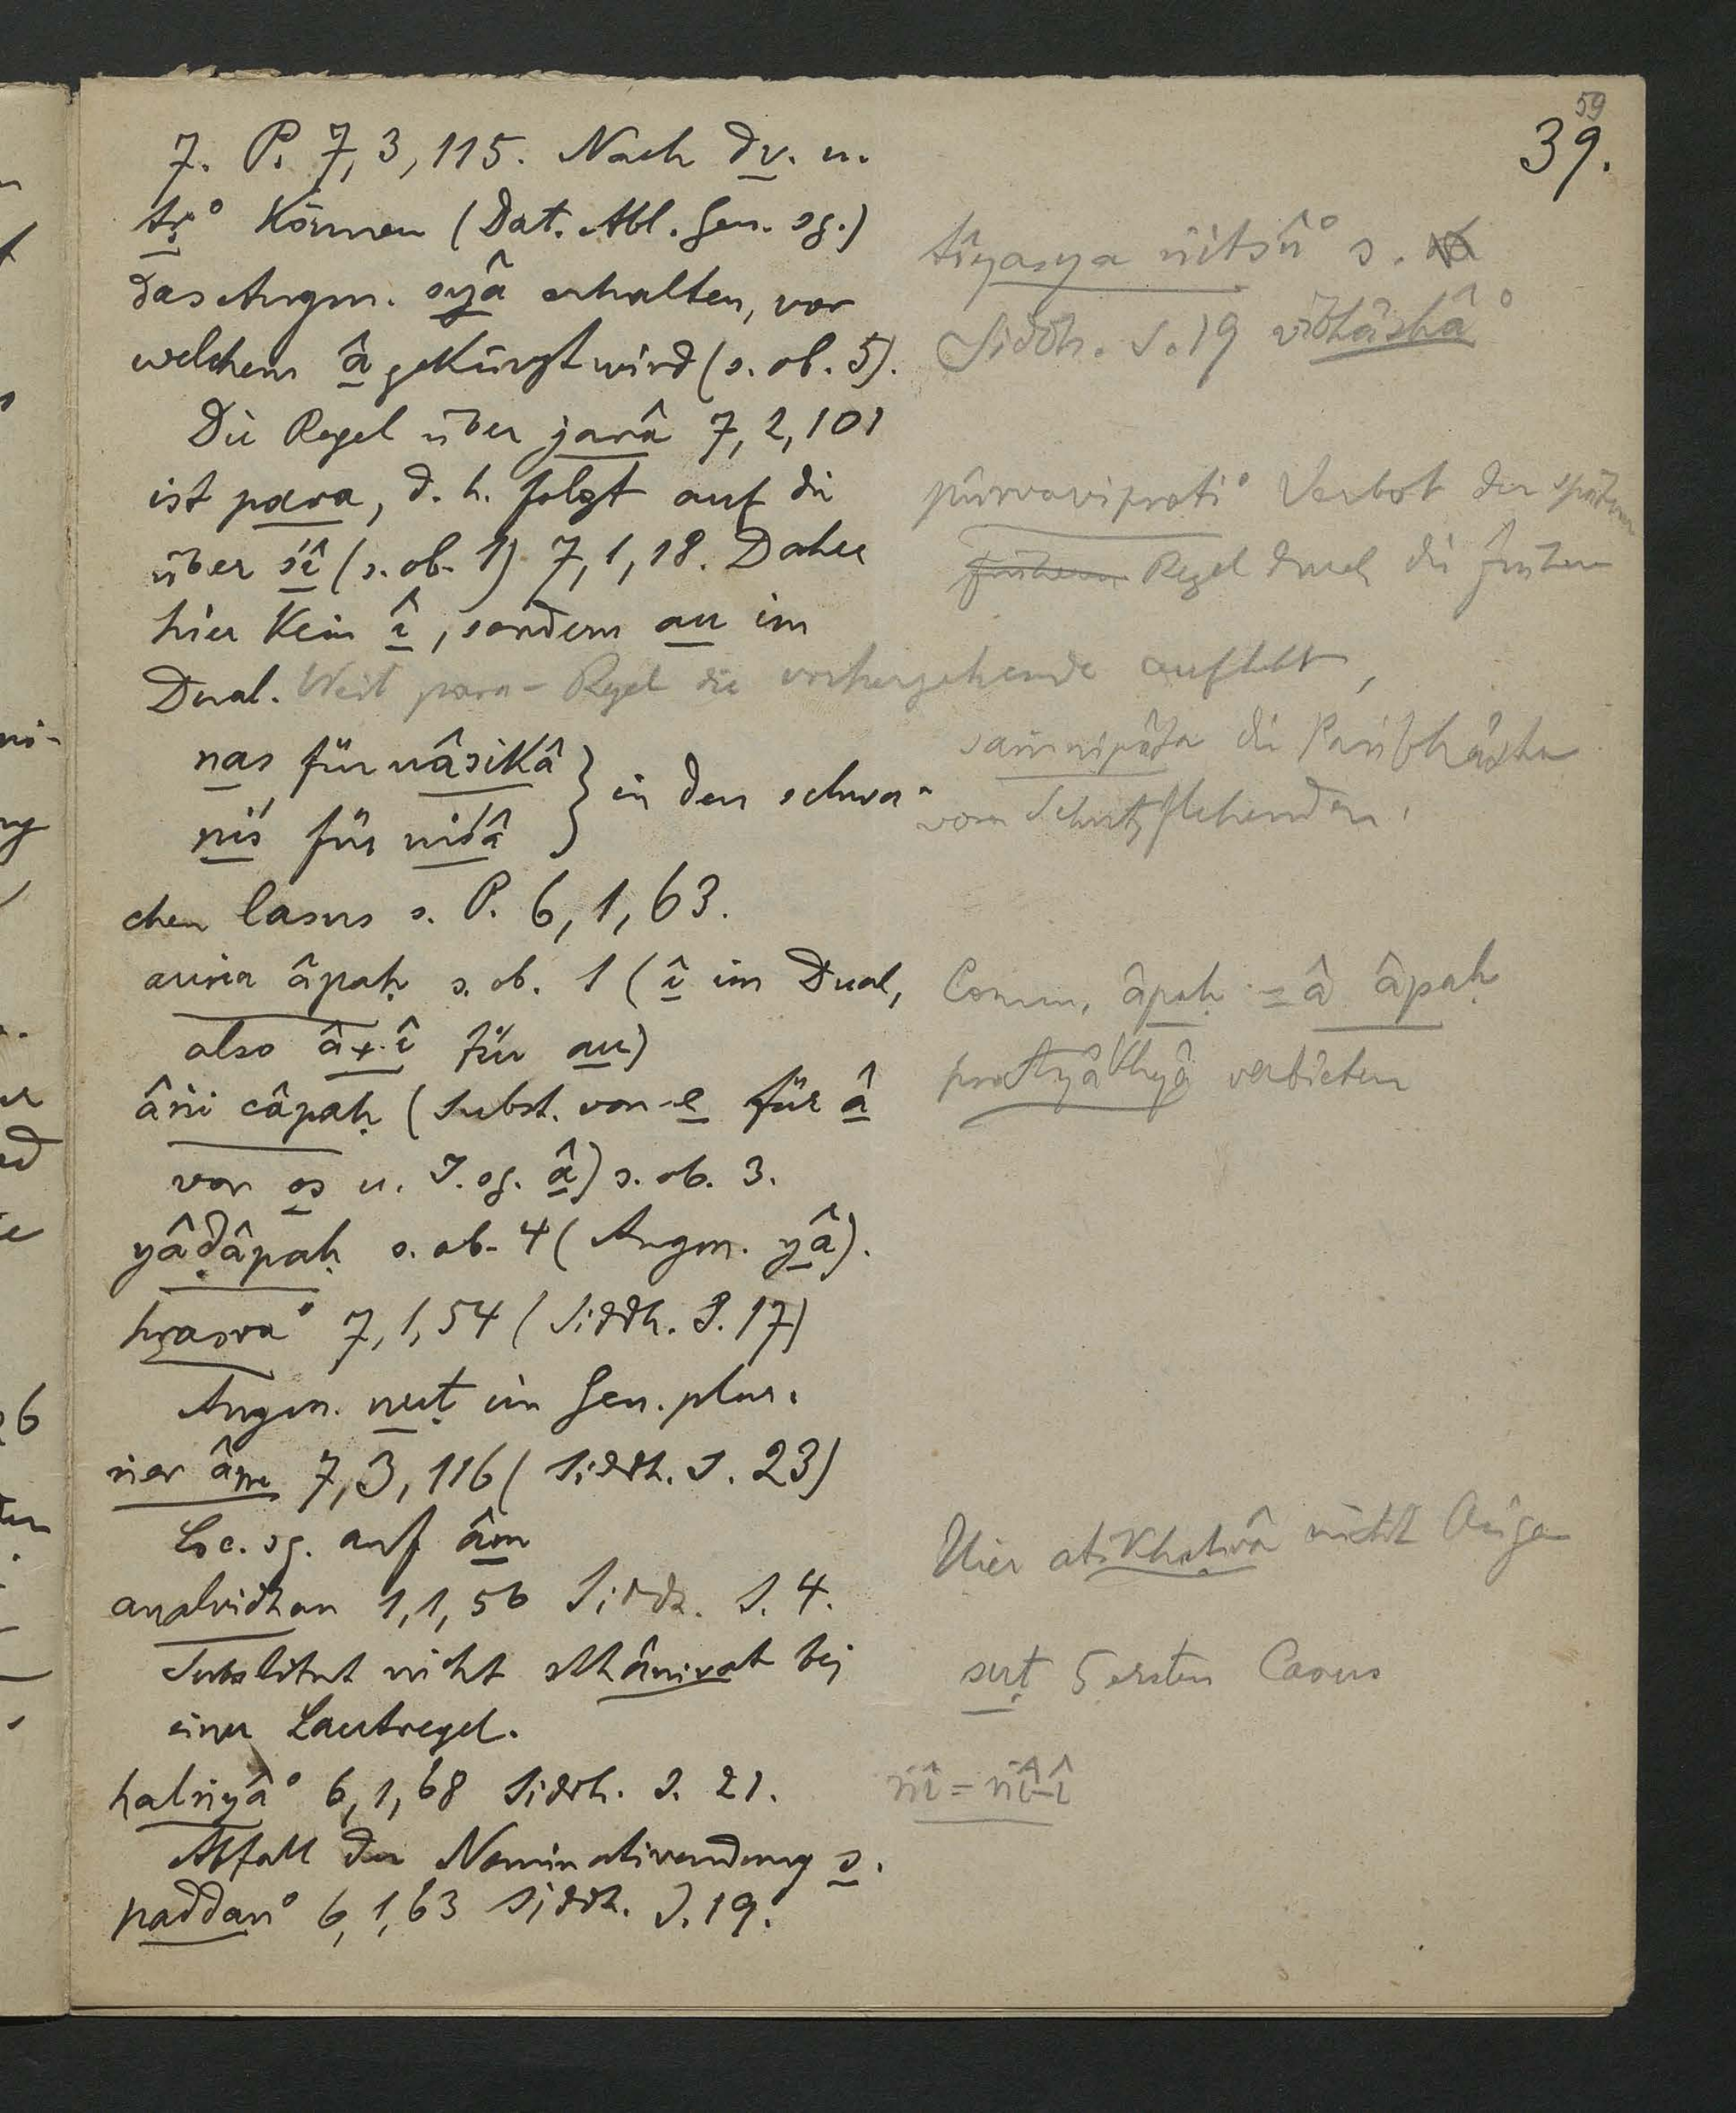 59
39.
7. P. 7, 3, 115. Nach dv. u.
tṛ° können (Dat. Abl. Gen. sg.)
das Augm. syâ erhalten, vor
welchem â gekürzt wird (s. ob. 5).
Die Regel über jarâ 7, 2, 101
ist para, d. h. folgt auf die
über śî (s. ob. 1) 7, 1, 18. Daher
hier kein î, sondern au im
Dual. Weil para-Regel die vorhergehende aufhebt,
nas für nâsikâ
niś für niśâ } in den schwa-
chen Casus s. P. 6, 1, 63.
auṅa âpaḥ s. ob. 1 (î im Dual,
also â+î für au)
âṅi câpaḥ (Subst. von e für â
vor os u. I. sg. â) s. ob. 3.
yâḍâpaḥ s. ob. 4 (Augm. yâ).
hrasva° 7, 1, 54 (Siddh. S. 17)
Augm. nuṭ im Gen. plur.
ṅer âm 7, 3, 116 (Siddh. S. 23)
Loc. sg. auf âm
analvidhau 1, 1, 56 Siddh. S. 4.
Substitut nicht sthânivat bei
einer Lautregel.
halṅyâ° 6, 1, 68 Siddh. S. 21.
Abfall der Nominativendung s.
paddan° 6, 1, 63 Siddh. S. 19.
tîyasya ṅitsû° s.
Siddh. S. 19 vibhâshâ°
pûrvaviprati° Verbot der späteren
früheren Regel durch die frühere
saṁnipâta die Paribhâsha
vom Schutzflehenden.
Comm. âpaḥ = â âpaḥ
pratyâkhyâ verbieten
Hier atikhaṭvâ nicht Aṅga
suṭ 5 ersten Casus
ṅî = ṅî-î